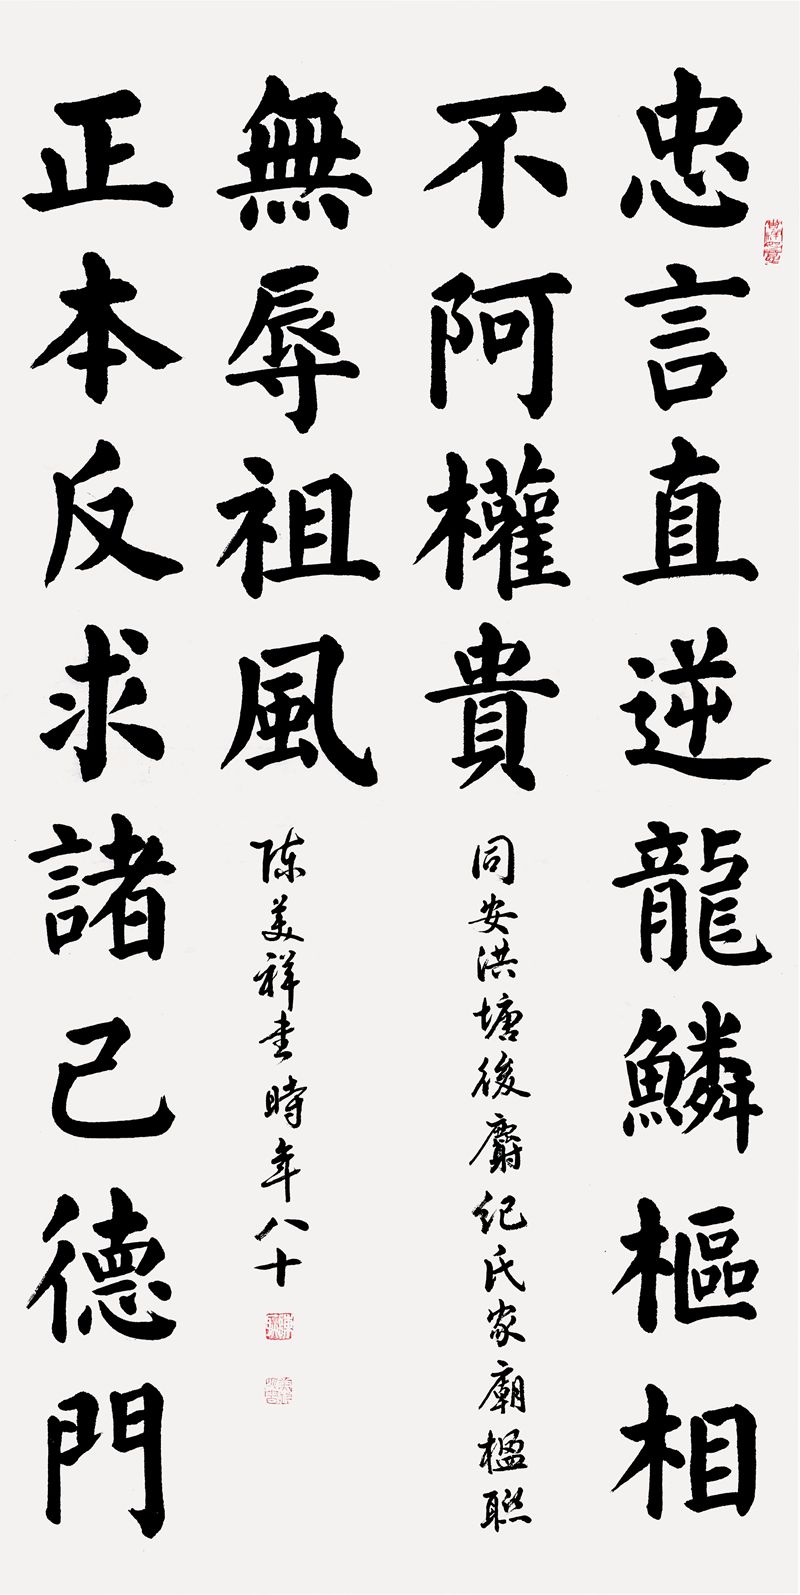 忠言直逆龍鱗樞相
不阿權貴
同安洪塘後麝紀氏家廟楹聯
正本反求諸己德門
無辱祖風
陈美祥書時年八十